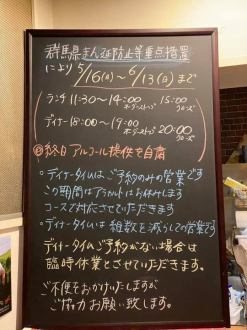 群馬県まん延防止等重点措置
により 5/16(日)〜6/13(日)まで
ランチ 11:30〜14:00 15:00
オーダーストップ クローズ
ディナー 18:00〜19:00 20:00
オーダーストップ クローズ
終日 アルコール提供を自粛
・ディナータイムはご予約のみの営業です
この期間はアラカルトはお休みします
コースで対応させていただきます
・ディナータイムは組数を減らしての営業です
ディナータイムご予約がない場合は
臨時休業とさせていただきます。
ご不便をおかけいたしますが
ご協力お願い致します。